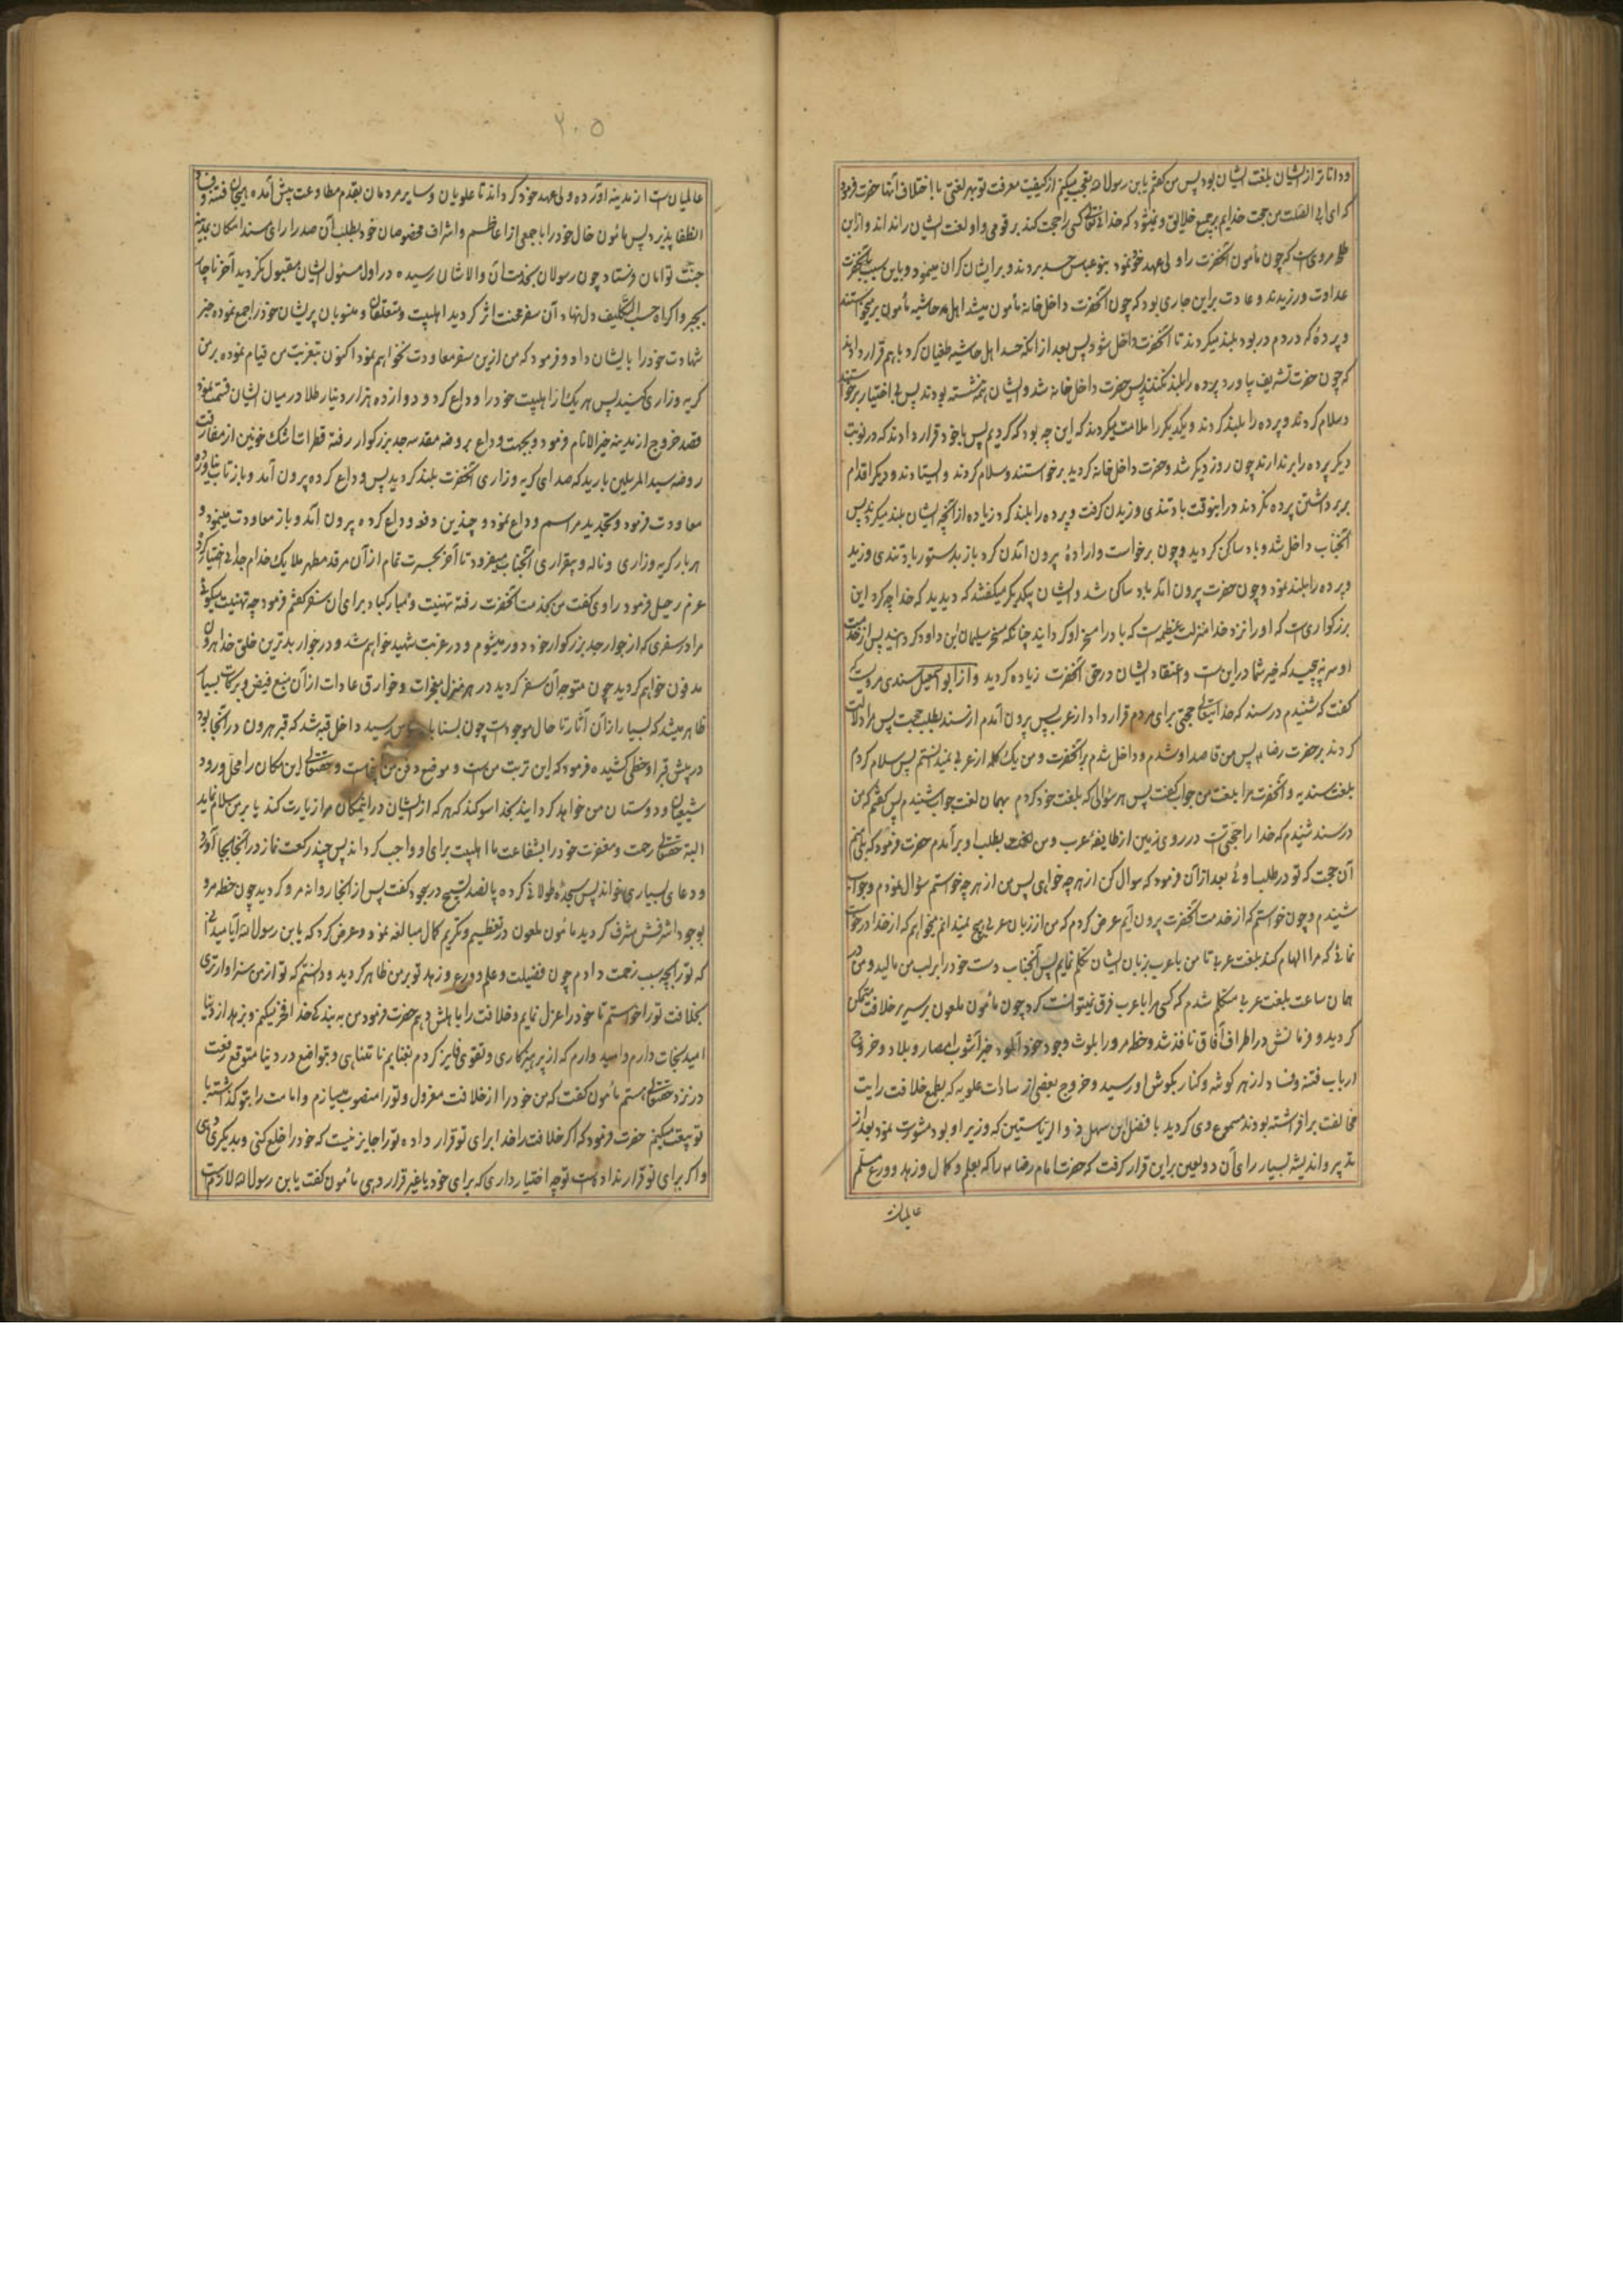 ودانا تر از ایشان بلغت ایشان بود پس من گفتم یابن رسول الله تعجب میکنم از کیفیت معرفت تو بهر لغتی با اختلاف آنها حضرت فرمود
که ای ابی الصلت من حجت خدایم بر جمیع خلایق و نمیشود که خدای تعالی کسی را حجت کند بر قومی و او لغت ایشان را نداند و ازین
مرویست که چون مأمون آنحضرت را ولی عهد خود نمود بنو عباس حسد بردند و بر ایشان گران مینمود و باین سبب با آنحضرت
عداوت ورزیدند و عادت براین جاری بود که چون آنحضرت داخل خانه مأمون میشد اهل حاشیه مأمون برمیخواستند
و پرده که در دم در بود بلند میکردند تا آنحضرت داخل شود پس بعد از آنکه حسد اهل حاشیه طغیان کرد با هم قرار دادند
که چون حضرت تشریف بیاورد پرده را بلند نکنند پس حضرت داخل خانه شد و ایشان نشسته بودند پس بی اختیار برخواستند
و سلام کردند و پرده را بلند کردند و یکدیگر را ملامت میکردند که این چه بود که کردیم پس باخود قرار دادند که در نوبت
دیگر پرده را برندارند چون روز دیگر شد و حضرت داخل خانه گردید برخواستند و سلام کردند و ایستادند و دیگر اقدام
بر برداشتن پرده نکردند در اینوقت باد تندی وزیدن گرفت و پرده را بلند کرد زیاده از آنچه ایشان بلند میکردند پس
آنجناب داخل شد و باد ساکن گردید و چون برخواست و اراده بیرون آمدن کرد باز بدستور باد تندی وزید
و پرده را بلند نمود و چون حضرت بیرون آمد باد ساکن شد و ایشان بیکدیگر میگفتند که دیدید که خدا چه کرد این
بزرگواریست که او را نزد خدا منزلت عظیمه است که باد را مسخر او گردانید چنانکه مسخر سلیمان ابن داود گردانید پس از خدمت
او سر نپیچید که خیر شما در این است و اعتقاد ایشان در حق آنحضرت زیاده گردید و از ابو اسمعیل سندی مرویست که
گفت که شنیدم در سند که خدایتعالی حجتی برای مردم قرار داد از عرب پس بیرون آمدم از سند بطلب حجت پس مرا دلالت
کردند بر حضرت رضا پس من قاصد او شدم و داخل شدم بر آنحضرت و من یک کلمه از عربی نمیدانستم پس سلام کردم
بلغت سندیه و آنحضرت مرا بلغت من جواب گفت پس هر سؤالی که بلغت خود کردم بهمان لغت جواب شنیدم پس گفتم که من
در سند شنیدم که خدا را حجتی است در روی زمین از طایفه عرب و من بطلب او برآمدم حضرت فرمود که بلی منم
آن حجت که تو در طلب اوئی بعد از آن فرمود که سوال کن از هر چه خواهی پس من از هر چه خواستم سؤال نمودم و جواب
شنیدم و چون خواستم که از خدمت آنحضرت بیرون آیم عرض کردم که من از زبان عربی هیچ نمیدانم میخواهم که از خدا درخواست
نمائی که مرا الهام کند بلغت عربی تا من با عرب بزبان ایشان تکلم نمایم پس آنجناب دست خود را بر لب من مالید و من در
همان ساعت بلغت عربی متکلم شدم که کسی مرا با عرب فرق نمیتوانست کرد چون مأمون ملعون بر سریر خلافت متمکن
گردید و فرمانش در اطراف آفاق نافذ شد و خطه مرو را بلوث وجود خود آلود خبر آشوب امصار و بلاد و خروج
ارباب فتنه و فساد از هر گوشه و کنار بگوش او رسید و خروج بعضی از سادات علویه که بطمع خلافت رایت
مخالفت برافراشته بودند مسموع وی گردید با فضل ابن سهل ذو الریاستین که وزیر او بود مشورت نمود بعد از
تدبیر و اندیشه بسیار رای آن دو لعین براین قرار گرفت که حضرت امام رضا را که بعلم و کمال و زهد و ورع مسلم
عالمیان
۲۰۵
عالمیان است از مدینه آورده ولی عهد خود گرداند تا علویان و سایر مردمان بقدم مطاوعت پیش آمده هیجان فتنه و فساد
انطفا پذیرد پس مأمون خال خود را با جمعی از اعاظم و اشراف مخصوصان خود بطلب آن صدر آرای مسند امکان بمدینه
جنت توامان فرستاد چون رسولان بخدمت آن والاشان رسیده در اول مسئول ایشان مقبول نگردید آخر ناچار
بجبر و اکراه حسب التکلیف دل نهاد آن سفر محنت اثر گردید اهلبیت و متعلقان و منسوبان پریشان خود را جمع نموده خبر
شهادت خود را بایشان داد و فرمود که من ازین سفر معاودت نخواهم نمود اکنون بتعزیت من قیام نموده بر من
گریه و زاری کنید پس هر یک از اهلبیت خود را وداع کرد و دوازده هزار دینار طلا در میان ایشان قسمت نمود
قصد خروج از مدینه خیر الانام فرمود و بجهت وداع بروضه مقدسه جد بزرگوار رفته قطرات اشک خونین از مفارقت
روضه سید المرسلین بارید که صدای گریه و زاری آنحضرت بلند گردید پس وداع کرده بیرون آمد و باز تاب نیاورده
معاودت فرمود و تجدید مراسم وداع نمود و چندین دفعه وداع کرده بیرون آمد و باز معاودت مینمود و
هر بار گریه و زاری و ناله و بیقراری آنجناب میفزود تا آخر بحسرت تمام از آن مرقد مطهر ملایک خدام جدائی اختیار کرده
عزم رحیل فرمود راوی گفت من بخدمت آنحضرت رفته تهنیت و مبارکباد برای آن سفر گفتم فرمود چه تهنیت میگوئی
مرا در سفری که از جوار جد بزرگوار خود دور میشوم و در غربت شهید خواهم شد و در جوار بدترین خلق خدا هرون
مدفون خواهم گردید چون متوجه آن سفر گردید در هر منزل معجزات و خوارق عادات از آن منبع فیض و برکات بسیار
ظاهر میشد که بسیار از آن آثار تا حال موجود است چون بسناباد طوس رسید داخل قبه شد که قبر هرون در آنجا بود
در پیش قبر او خطی کشیده فرمود که این تربت من است و موضع دفن من اینجاست و حقتعالی این مکان را محل ورود
شیعیان و دوستان من خواهد گردانید بخدا سوگند که هر که از ایشان در این مکان مرا زیارت کند یا بر من سلام نماید
البته حقتعالی رحمت و مغفرت خود را بشفاعت ما اهلبیت برای او واجب گرداند پس چند رکعت نماز در آنجا بجا آورد
و دعای بسیاری خواند پس سجده طولانی کرده پانصد تسبیح در سجود گفت پس از آنجا روانه مرو گردید چون خطه مرو
بوجود اشرفش مشرف گردید مأمون ملعون در تعظیم و تکریم کمال مبالغه نمود و عرض کرد که یابن رسول الله آیا میدانی
که تو را بچه سبب زحمت دادم چون فضیلت و علم و ورع و زهد تو بر من ظاهر گردید و دانستم که تو از من سزاوارتری
بخلافت تو را خواستم تا خود را عزل نمایم و خلافت را باهلش دهم حضرت فرمود من به بندگی خدا فخر میکنم و بزهد از دنیا
امید نجات دارم و امید وارم که از پرهیزکاری و تقوی فایز گردم بغنایم نا متناهی و بتواضع در دنیا متوقع رفعت
در نزد حقتعالی هستم مأمون گفت که من خود را از خلافت معزول و تو را منصوب میسازم و امامت را بتو گذاشته با
تو بیعت میکنم حضرت فرمود که اگر خلافت را خدا برای تو قرار داده تو را جایز نیست که خود را خلع کنی و بدیگری دهی
و اگر برای تو قرار نداده است تو چه اختیار داری که برای خود یا غیر قرار دهی مأمون گفت یابن رسول الله لا بد است